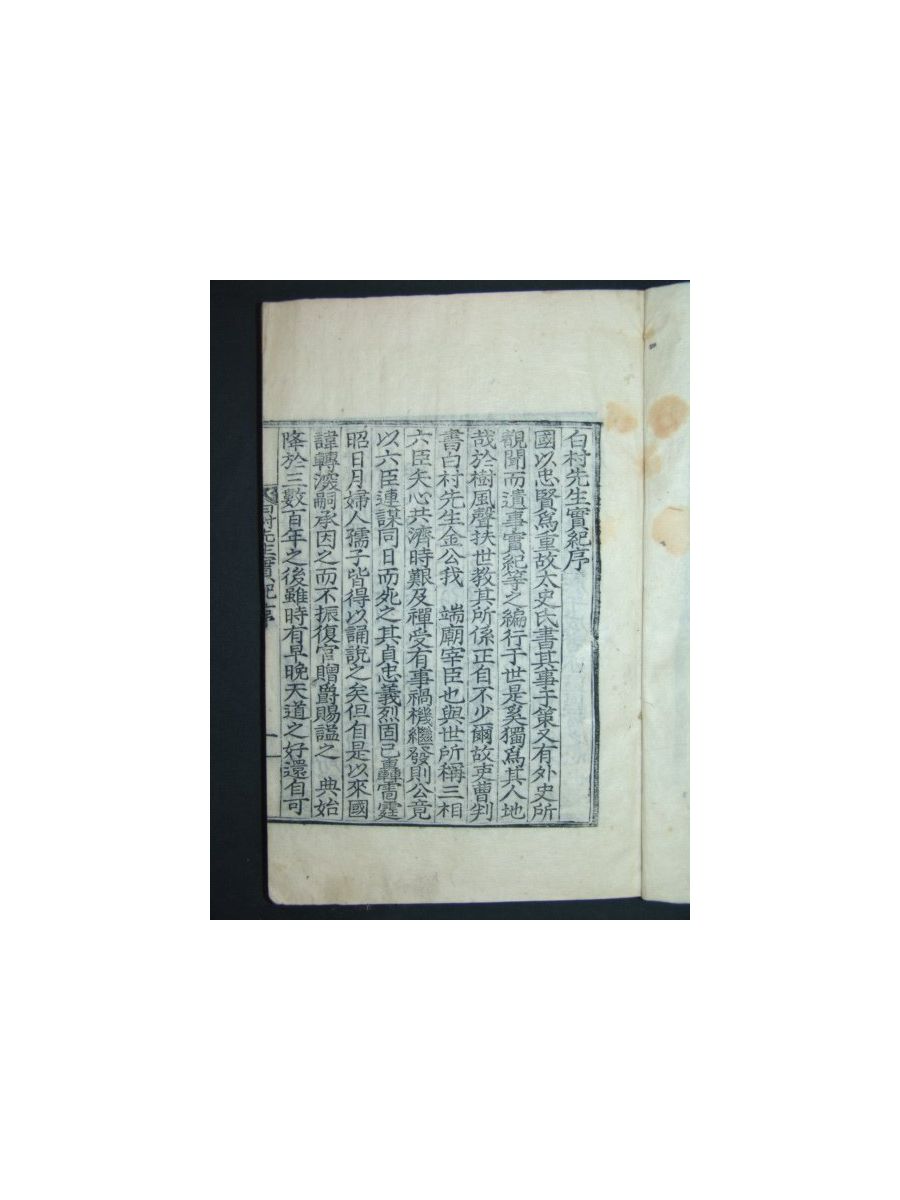 白村先生實紀序
國以忠賢爲重故太史氏書其事于策又有外史所
覩聞而遺事實紀等之編行于世是奚獨爲其人地
哉於樹風聲扶世教其所係正自不少爾故吏曹判
書白村先生金公我 端廟宰臣也與世所稱三相
六臣矢心共濟時艱及禪受有事禍機繼發則公竟
以六臣連謀同日而死之其貞忠義烈固已轟雷霆
昭日月婦人孺子皆得以誦說之矣但自是以來國
諱轉深嗣承因之而不振復官贈爵賜謚之 典始
降於三數百年之後雖時有早晚天道之好還自可
白村先生實紀序 一